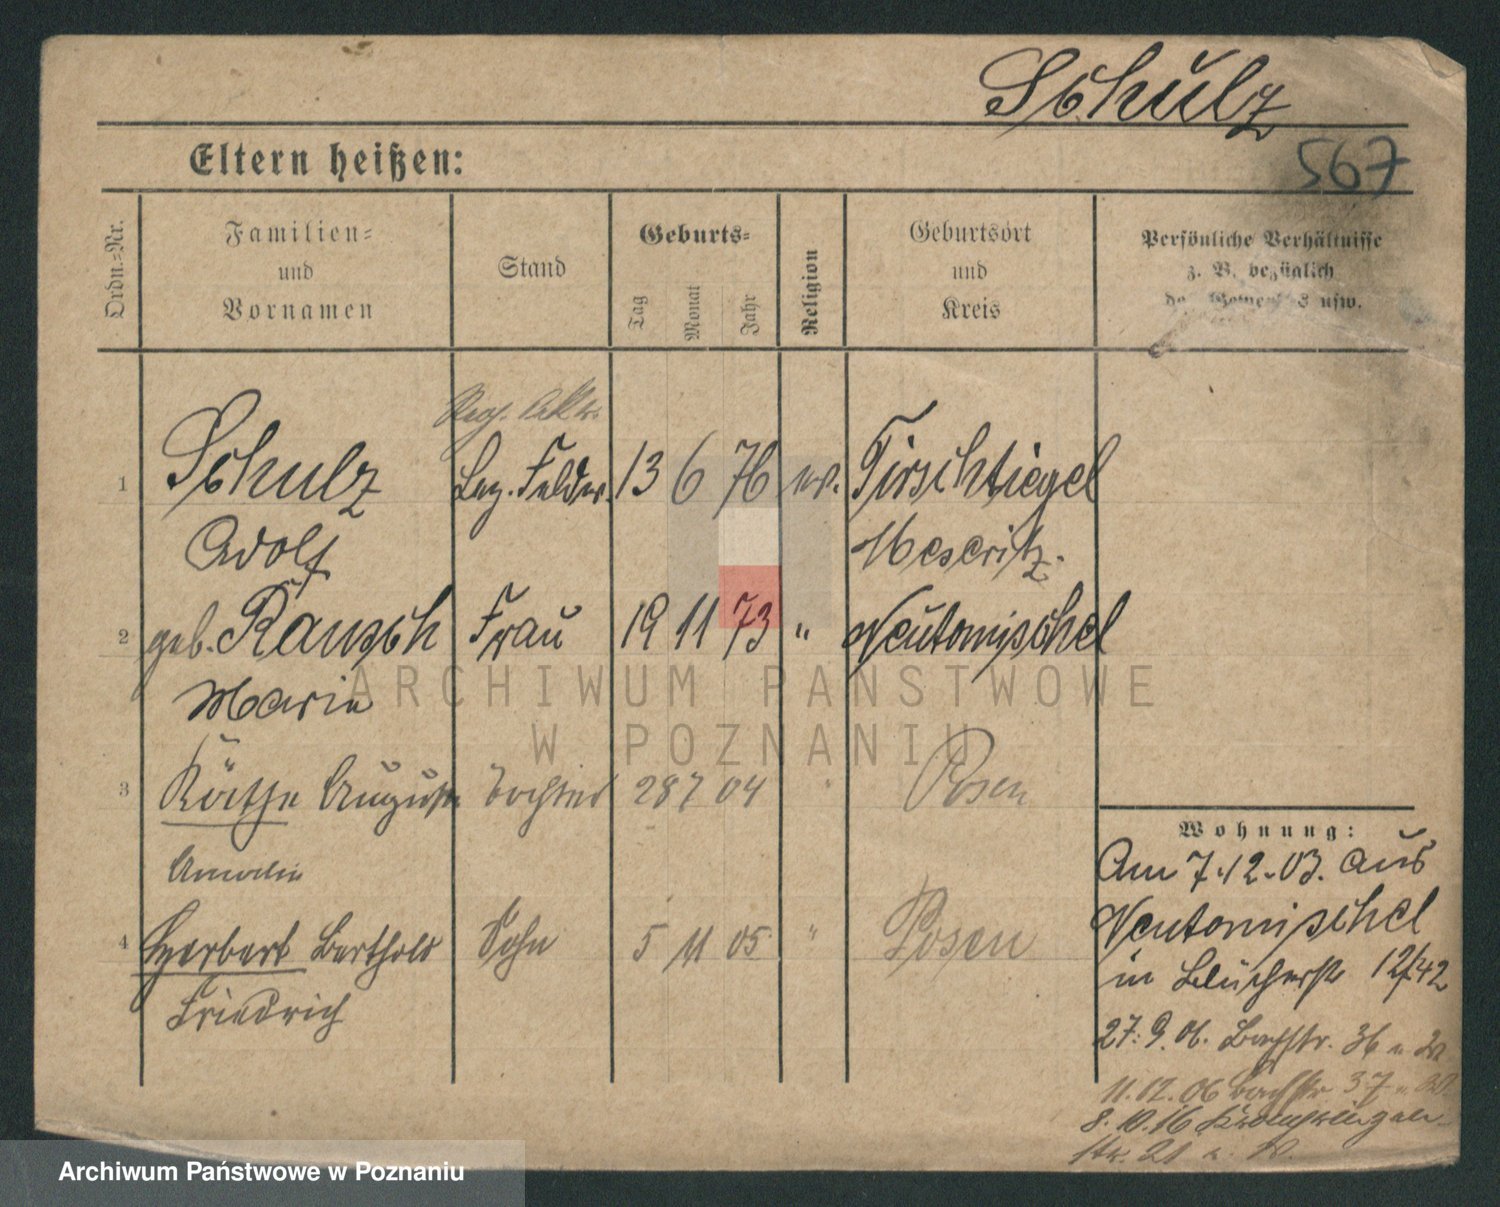 Schulz
567
Eltern heißen:
Ordn.-Nr.
Familien-
und
Vornamen
Stand
Geburts-
Tag
Monat
Jahr
Religion
Geburtsort
und
Kreis
Persönliche Verhältnisse
z. B. bezüglich
usw.
1 Schulz 13 6 76 ev. Tirschtiegel
Adolf Meseritz
2 geb. Rausch Frau 19 11 73 " Neutomischel
Marie
3 Käthe Auguste Tochter 28 7 04 " Posen
Amalie
4 Herbert Berthold Sohn 5 11 05 " Posen
Friedrich
Wohnung:
Am 7.12.03. aus
Neutomischel
in Blücherstr
27.9.06. Bachstr. 36
11.12.06 Bachstr 37
8.10.16 Kronprinzen-
str. 21
ARCHIWUM PAŃSTWOWE
W POZNANIU
Archiwum Państwowe w Poznaniu